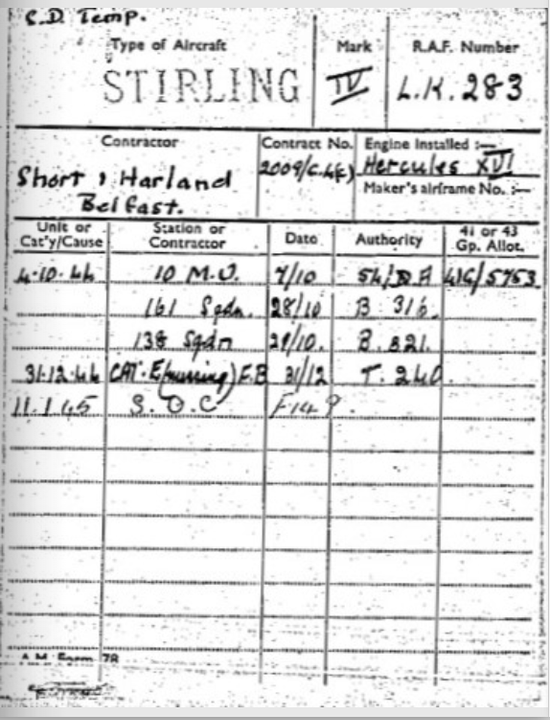 C.D. Temp.
Type of Aircraft Mark R.A.F. Number
STIRLING IV L.K. 283
Contractor Contract No. Engine Installed :—
Short & Harland 2009/C.4(c) Hercules XVI
Belfast. Maker's airframe No. :—
Unit or Cat'y/Cause Station or Contractor Date Authority 41 or 43 Gp. Allot.
4.10.44 10 M.U. 7/10 41G/5753
161 Sqdn. 28/10 B 316.
138 Sqdn 29/10. B. 321.
31.12.44 CAT.E(missing) F.B 31/12 T. 240.
11.1.45 S.O.C F149.
A.M. Form 78